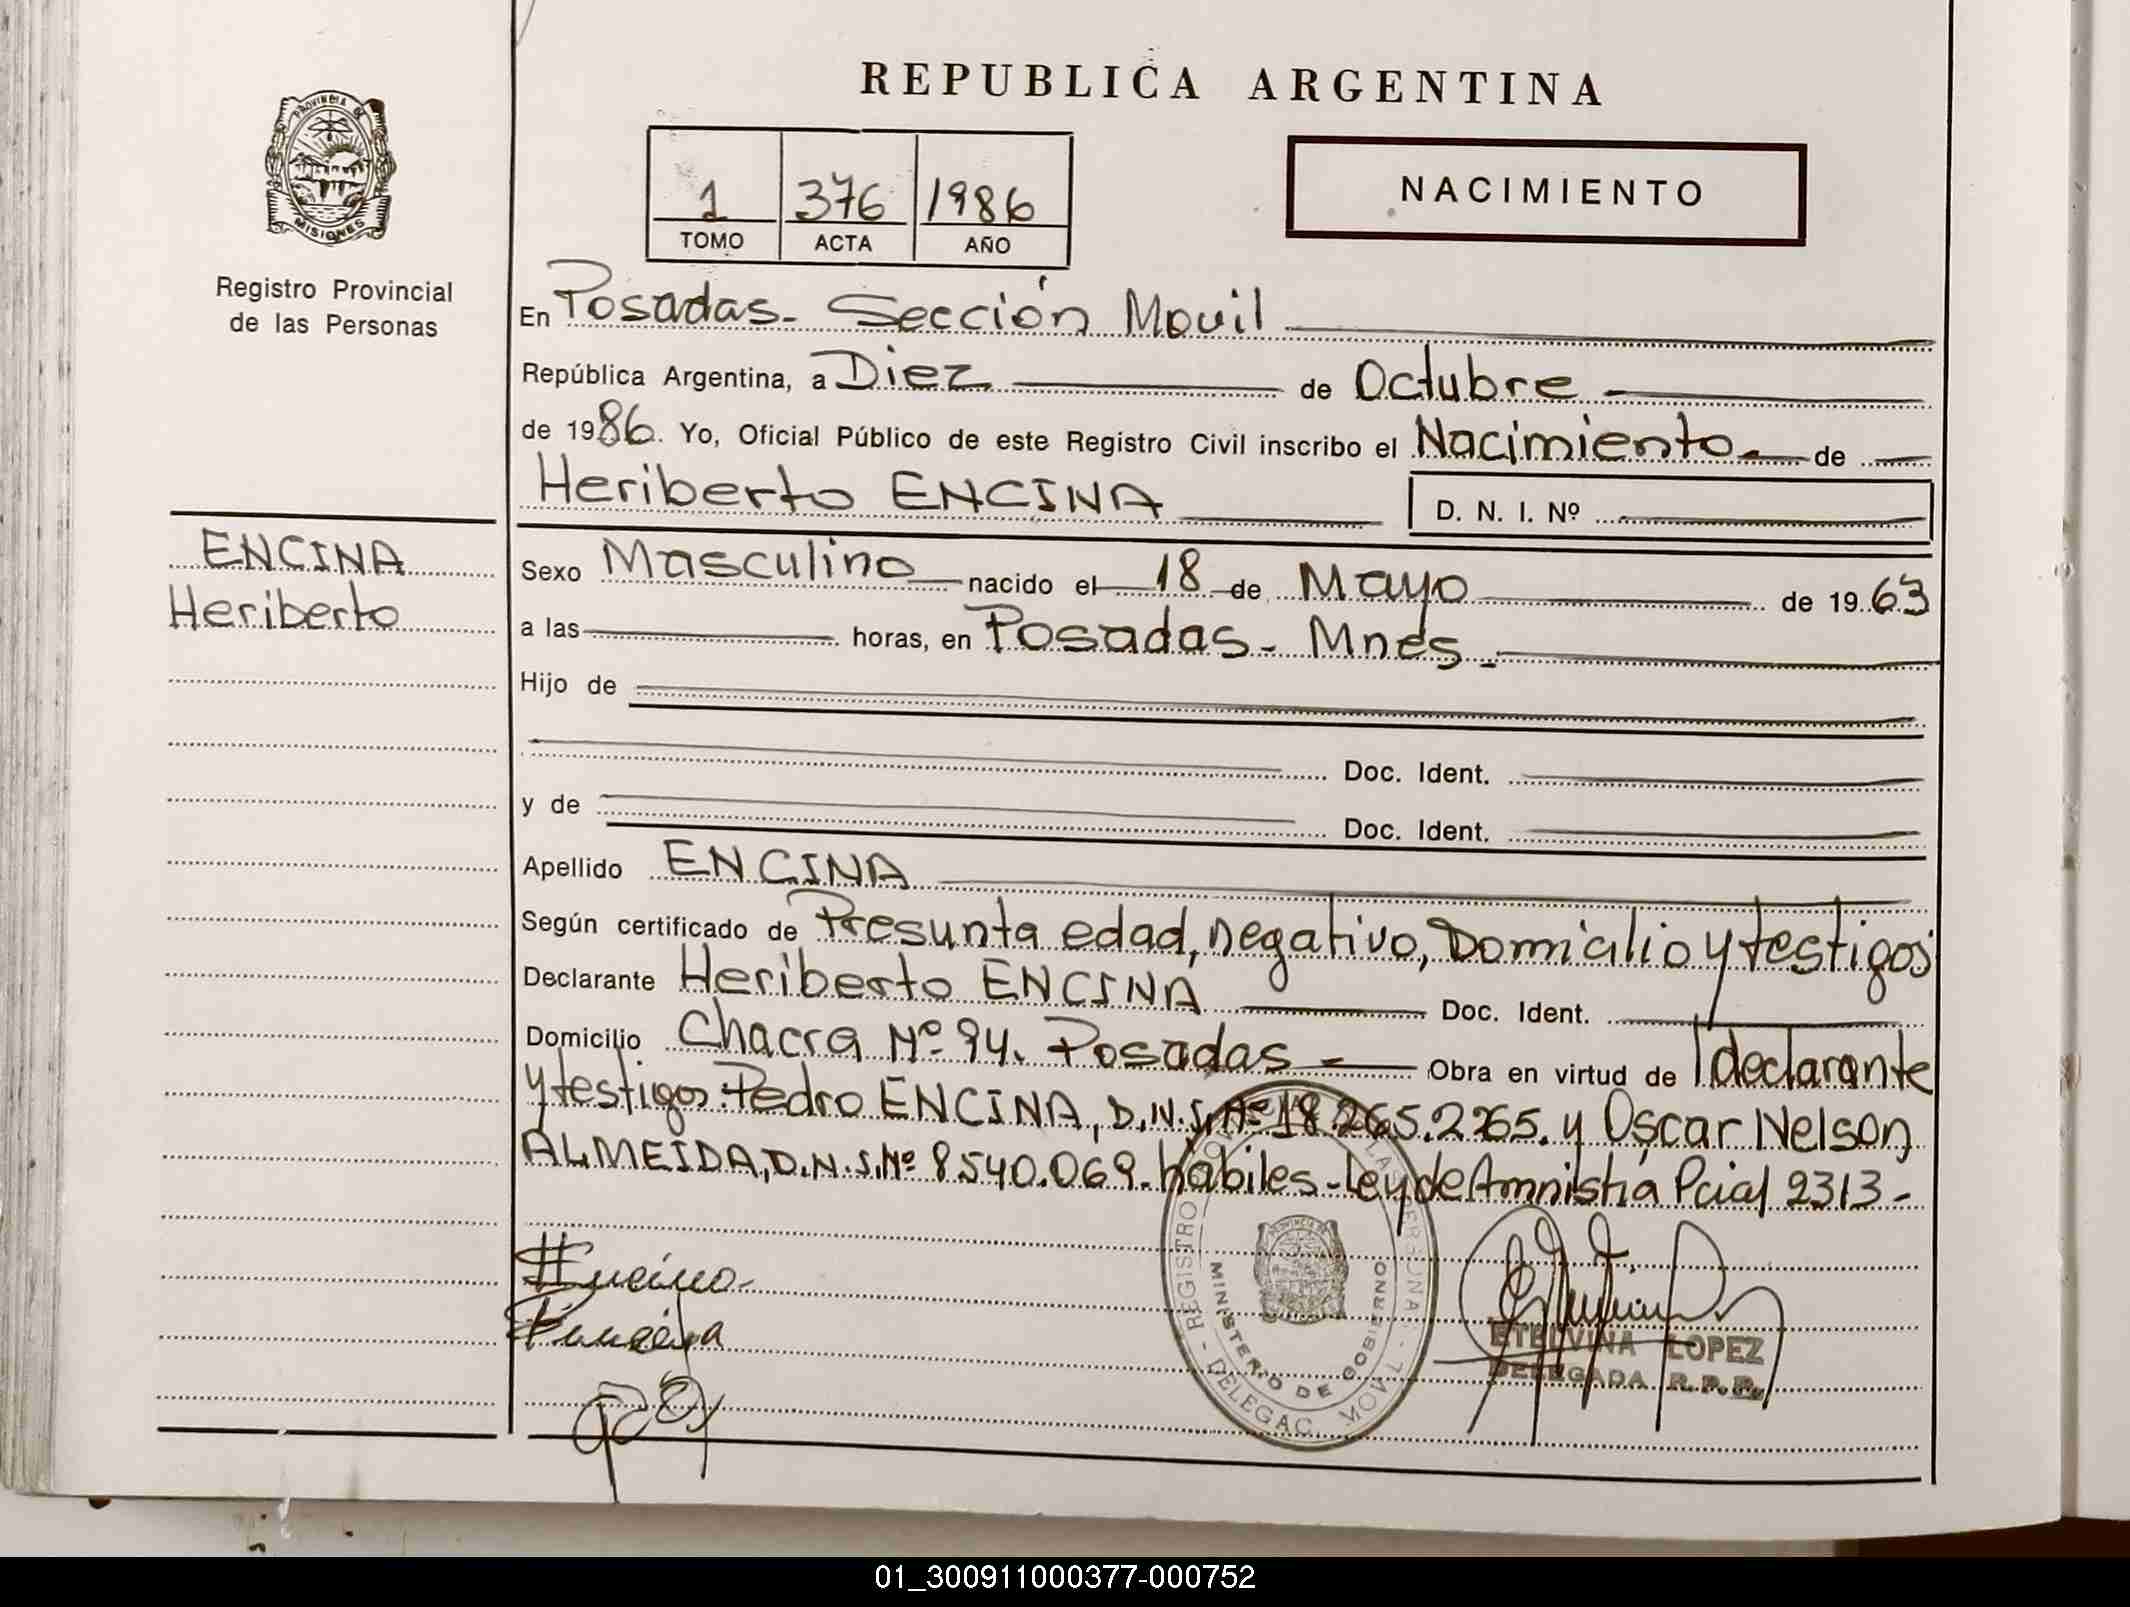 REPUBLICA ARGENTINA
PROVINCIA DE
MISIONES
Registro Provincial
de las Personas
1 376 1986
TOMO ACTA AÑO
NACIMIENTO
En Posadas - Sección Movil
República Argentina, a Diez de Octubre
de 1986. Yo, Oficial Público de este Registro Civil inscribo el Nacimiento de
Heriberto ENCINA D. N. I. Nº
ENCINA
Heriberto
Sexo Masculino nacido el 18 de Mayo de 1963
a las horas, en Posadas - Mnes -
Hijo de
Doc. Ident.
y de Doc. Ident.
Apellido ENCINA
Según certificado de Presunta edad, negativo, Domicilio y testigos
Declarante Heriberto ENCINA Doc. Ident.
Domicilio Chacra Nº 94. Posadas - Obra en virtud de declarante
y testigos: Pedro ENCINA, D.N.I. Nº 18.265.2265. y Oscar Nelson
ALMEIDA, D.N.I. Nº 8.540.069. habiles - Ley de Amnistia Pcial 2313 -
HEncina -
PEncina
REGISTRO PERSONAS - DELEGAC. MOVIL
MINISTERIO DE GOBIERNO
ETELVINA LOPEZ
DELEGADA R. P. P.
01_300911000377-000752